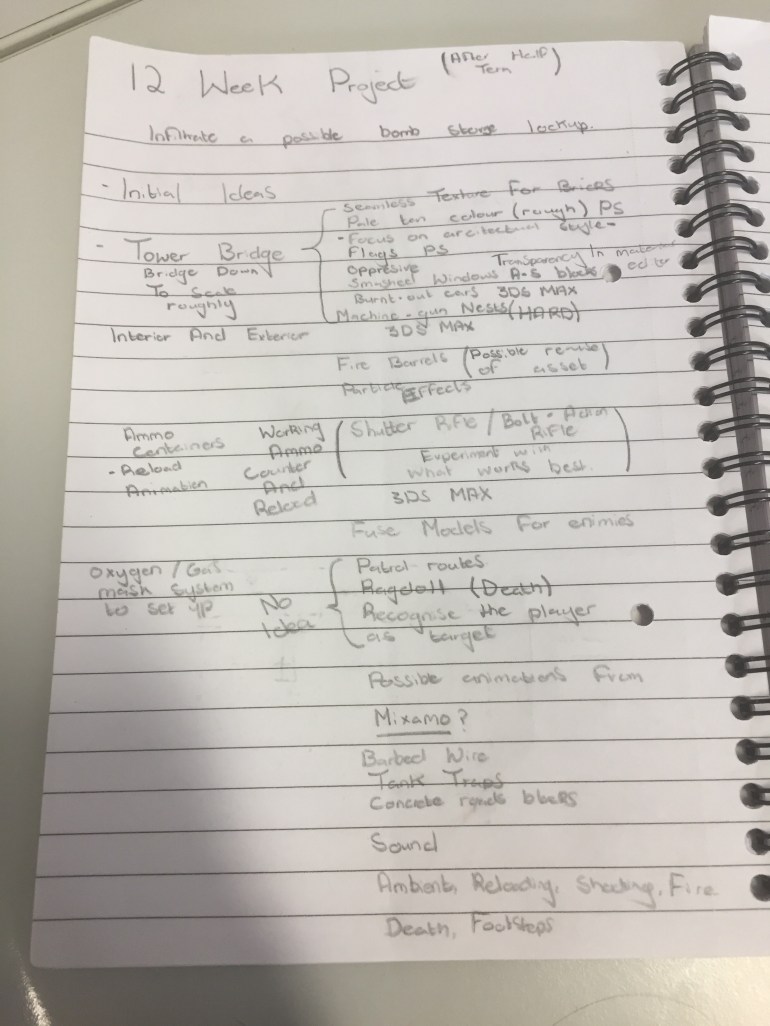 12 Week Project (After Half Term)
Infiltrate a possible bomb storge lockup.
- Initial Ideas
Seamless Texture For Brices
Pale ten colour (rough) PS
- Focus on arcitectual style-
- Tower Bridge
Flags PS
Bridge Down
Oppresive
Transparency In material
To Scale
Smashed Windows A-S blocks
roughly
Burnt-out cars 3DS MAX
Machine-gun Nests (HARD)
Interior And Exterior
3DS MAX
Fire Barrels (Possible reuse of asset)
Particle Effects
Ammo Containers
Working Ammo Counter And Reload
(Shutter Rifle / Bolt-Action Rifle
Experiment with
what works best.)
- Reload Animation
3DS MAX
Fuse Models For enimies
Oxygen / Gas mask system to set up
No Idea
Patrol routes
Ragdoll (Death)
Recognise the player
as target
Possible animations From
Mixamo?
Barbed Wire
Tank Traps
Concrete
Sound
Ambient, Reloading, Shooting, Fire
Death, Footsteps